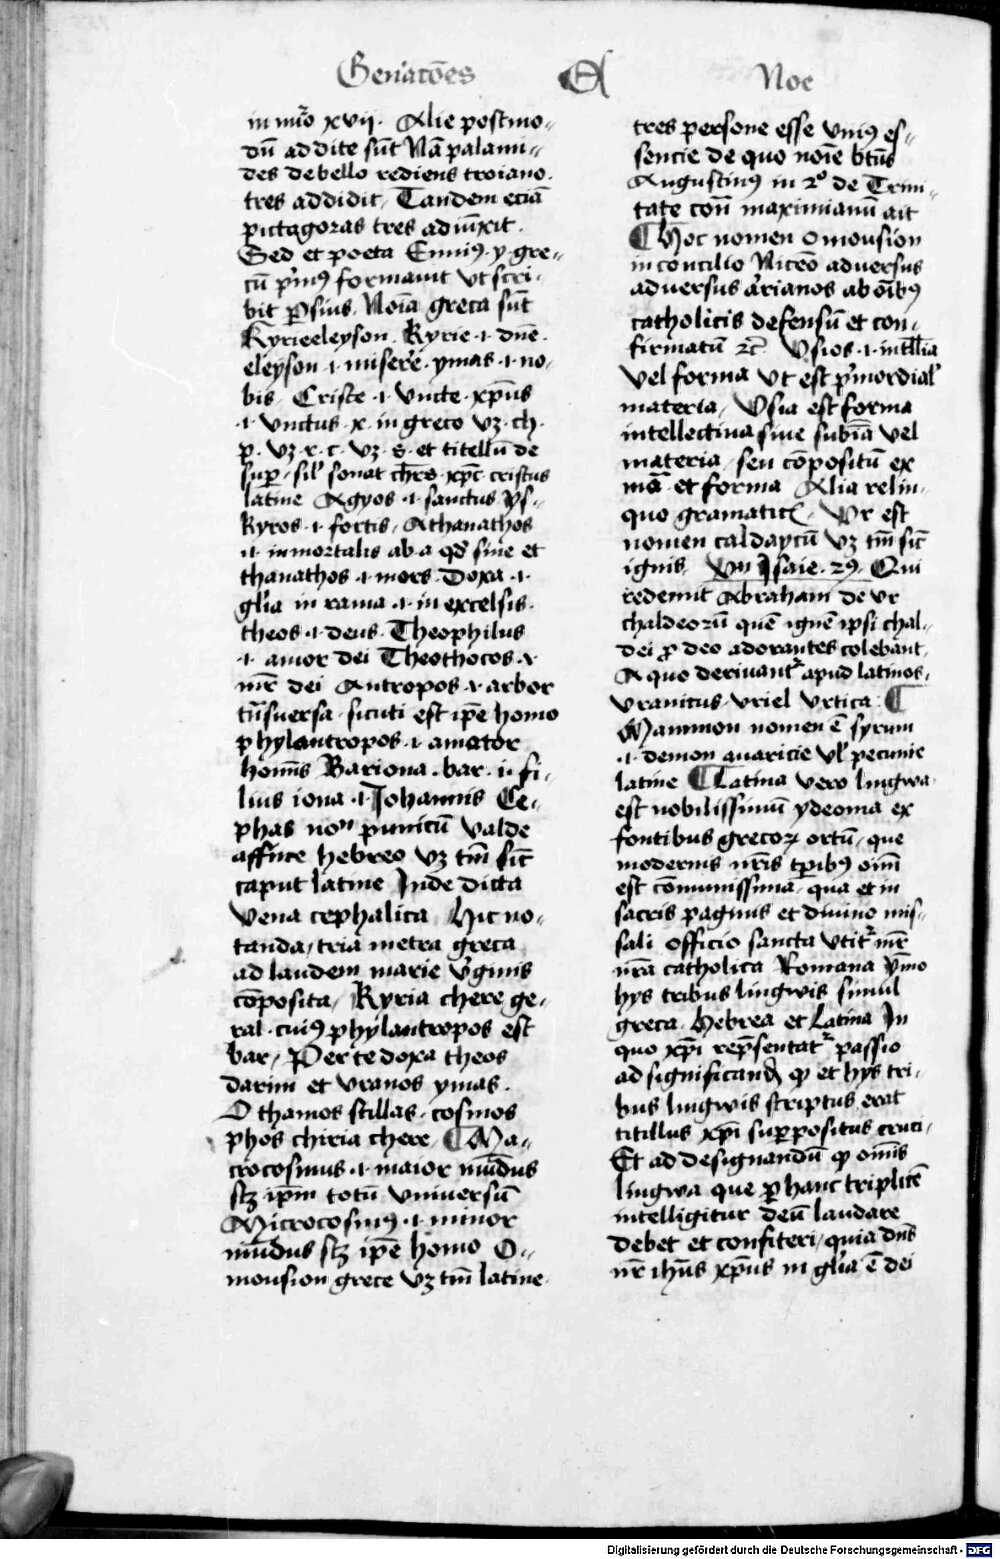 Gen̄atōes A Noe
in nūo xvij. Alie postmo-
dū addite sūt Nā palami-
des de bello rediens troiano.
tres addidit / Tandem eciā
pictagoras tres adiūxit.
Sed et poeta Enniꝰ y gre-
cū p̄miꝰ formauit vt scri-
bit p̄sius. Noīa greca sūt
Kyrieeleyson. Kyrie .i. dn̄e
eleyson .i. misere͂. ymas .i. no-
bis. Criste .i. vncte. xp̄us
.i. vnctus. x. in greco vꝫ. ch.
p. vꝫ. r. c. vꝫ. s. et titellū de
sup / sil̕ sonat chr̄s. xp̄c cristus
latine Agyos .i. sanctus ys-
kyros .i. fortis / Athanathos
.i. inmortalis ab .a. qd̕ sine et
thanathos .i. mors. Doxa .i.
gl̄ia in rama .i. in excelsis.
theos .i. deus. Theophilus
.i. amor dei Theothocos .i.
mr̄ dei Antropos .i. arbor
tn̄suersa. sicuti est ip̄e homo
phylantropos .i. amator
homīs Bariona. bar. i. fi-
lius iona .i. Johannis Ce-
phas noⁿ punicū valde
affine hebreo vꝫ tm̄ sic̄
caput latine Inde dicta
vena cephalica Hic no-
tanda / tria metra greca
ad laudem marie v̄ginis
cōposita / Kyria chere ge-
ral. cuiꝰ phylantropos est
bar / Per te doxa theos
darim et vranos ymas.
O thamos stillas. cosmos
phos chiria chere / ¶ Ma-
crocosmus .i. maior mūdus
scꝫ ip̄m totū vniuersū
Microcosmꝰ .i. minor
mūdus scꝫ ip̄e homo O-
mousion grece vꝫ tm̄ latine.
tres persone esse vniꝰ es-
sencie de quo noīe bt̄us
Augustinꝰ in 2º de Trini-
tate con̄ maximianū ait
¶ Hoc nomen omousion
in concilio Nicēo aduersus
aduersus arianos ab oīb̕ꝰ
catholicis defensū et con-
firmatū ⁊c̄ Vsios .i. intl̄l̄ia
vel forma vt est p̄mordial̕
materia / Vsia est forma
intellectiua siue subīa vel
materia / seu cōpositū ex
mā et forma Alia relin-
quo gramatic̕ / Vr est
nomen caldaycū vꝫ tm̄ sic̄
ignis. Vn̄ Isaie. 29. Qui
redemit Abraham de vr
chaldeorū quē ignē ipsi chal-
dei p̱ deo adorantes colebant.
A quo deriuant̕ apud latinos.
vranitus. vriel vrtica. ¶
Mammon nomen ē syrum
.i. demon auaricie vl̕ pecunie
latine ¶ Latina vero lingwa
est nobilissimū ydeoma ex
fontibus grecoꝝ ortū / que
modernis nr̄is tp̄ibꝰ oīm
est cōmunissima. qua et in
sacris paginis et diuino mis-
sali officio sancta vtit̕ mr̄
nr̄a catholica Romana ymo
hys tribus lingwis simul
greca. Hebrea et Latina In
quo xp̄i rep̄sentat̕ passio
ad significand̕ ꝙ et hys tri-
bus lingwis scriptus erat
titillus xp̄i suppositus cruci.
Et ad designandū ꝙ om̄is
lingwa que p̱ hanc triplicē
intelligitur deū laudare
debet et confiteri / quia dn̄s
nr̄ ihūs xp̄us in gl̄ia ē dei
Digitalisierung gefördert durch die Deutsche Forschungsgemeinschaft - DFG